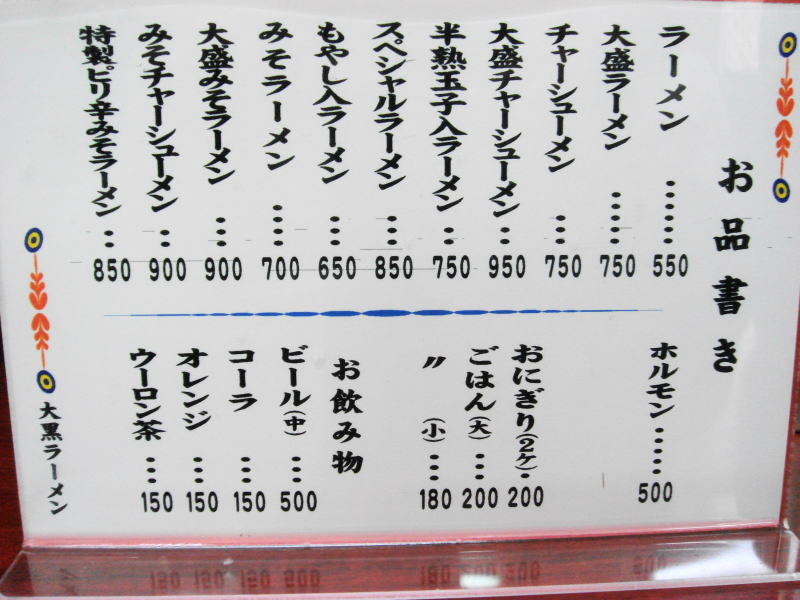 お品書き
ラーメン・・・・・・550
大盛ラーメン・・・・・750
チャーシューメン・・・750
大盛チャーシューメン・・950
半熟玉子入ラーメン・・750
スペシャルラーメン・・・850
もやし入ラーメン・・・650
みそラーメン・・・・700
大盛みそラーメン・・・900
みそチャーシューメン・・900
特製ピリ辛みそラーメン・・850
ホルモン・・・・・・500
おにぎり(2ケ)・200
ごはん(大)・・・200
〃 (小)・・・180
お飲み物
ビール(中)・・・500
コーラ・・・150
オレンジ・・・150
ウーロン茶・・・150
大黒ラーメン